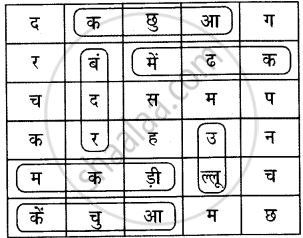 द क छु आ ग
र बं में ढ क
च द स म प
क र ह उ न
म क ड़ी ल्लू च
कें चु आ म छ
shaalaa.com